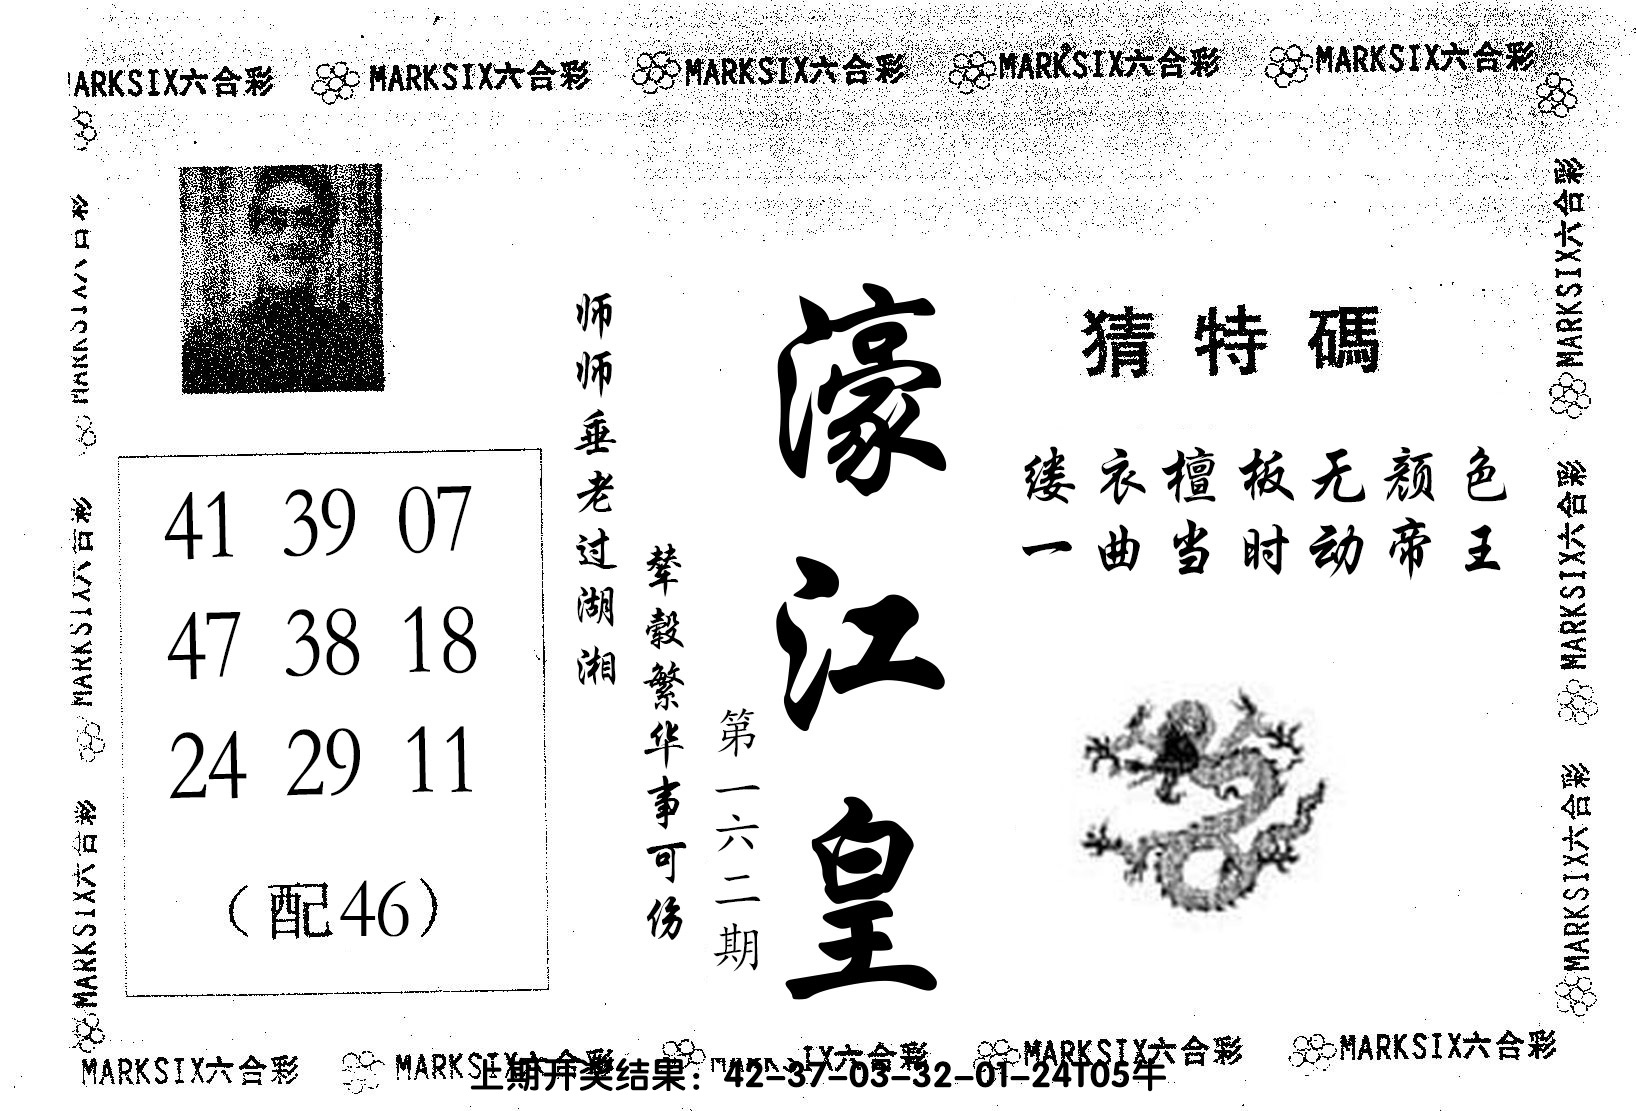 MARKSIX六合彩 MARKSIX六合彩 MARKSIX六合彩 MARKSIX六合彩 MARKSIX六合彩
MARKSIX六合彩
MARKSIX六合彩
MARKSIX六合彩
猜特碼
缕衣檀板无颜色
一曲当时动帝王
濠江皇
第一六二期
辇毂繁华事可伤
师师垂老过湖湘
41 39 07
47 38 18
24 29 11
（配46）
MARKSIX六合彩
MARKSIX六合彩
MARKSIX六合彩
MARKSIX六合彩 MARKSIX六合彩 MARKSIX六合彩 MARKSIX六合彩 MARKSIX六合彩
上期开奖结果：42-37-03-32-01-24T05牛